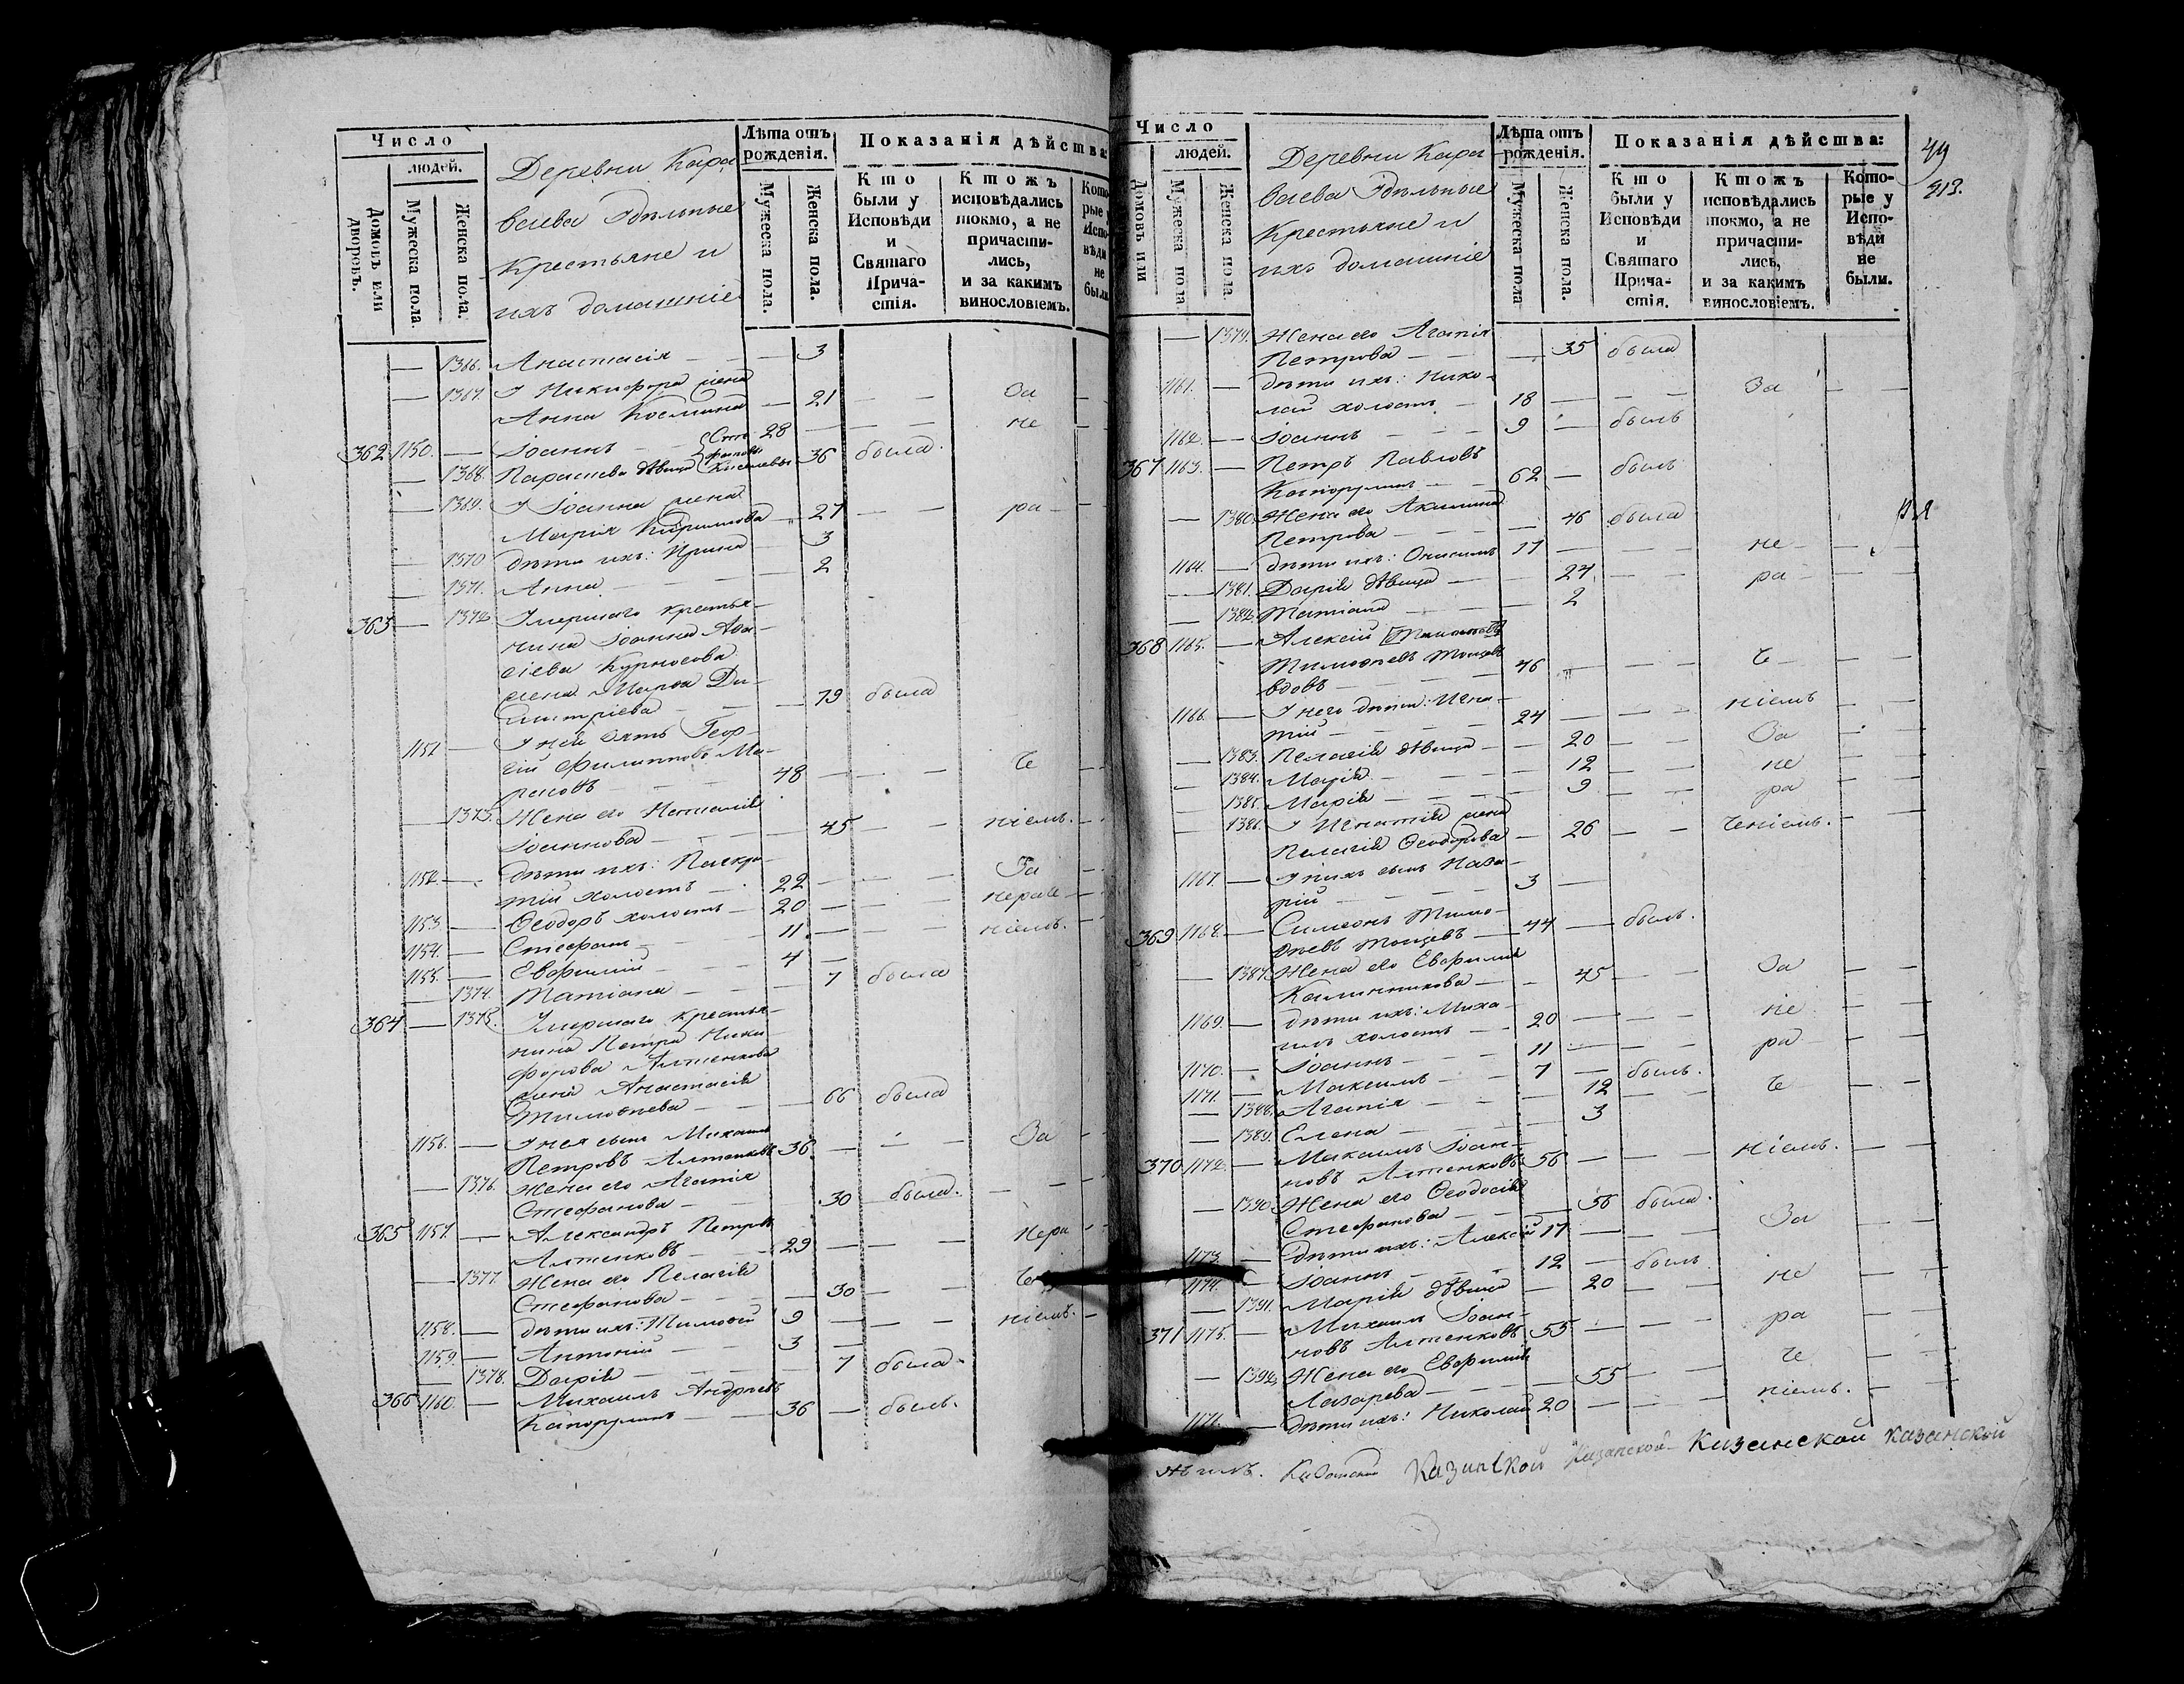 Число
людей.
Домовъ или дворовъ.
Мужеска пола.
Женска пола.
Деревни Кара
ваева Удѣльные
Крестьяне и
ихъ домашніе
Лѣта отъ рожденія.
Мужеска пола.
Женска пола.
Показанія дѣйства:
Кто были у Исповѣди и Святаго Причастія.
Ктожъ исповѣдались токмо, а не причастились, и за какимъ винословіемъ.
Которые у Исповѣди не были.
— 1366. Анастасія — — 3
— 1367. У Никифора жена
Анна Космина — 21 — — За —
362 1150. — Іоаннъ — 28 — — не
— 1368. Параскева дѣвица 36 была.
— 1369. У Іоанна жена
Марія Кириллова — 27 — — ра —
— 1370 дѣти ихъ: Ирина — 3
— 1371. Анна — — 2
363 — 1372 Умершаго крестья-
нина Іоанна Ава-
сіева Курносова
жена Марѳа Ди-
митріева — — 79 была
1151 — У ней зять Геор-
гій Филипповъ Ма-
48 — — Че
— 1373. Жена его Наталія
Іоаннова — — 45 — — ніемъ. —
1152. — дѣти ихъ: Панкра-
тій холостъ — 22 — — За —
1153. — Ѳеодоръ холостъ — 20 — — нераче —
1154. — Стефанъ — 11 — — ніемъ.
1155. — Евфимій — 4 —
— 1374. Татіана — — 7 была
364 — 1375. Умершаго крестья-
нина Петра Ники-
форова Алтенкова
жена Анастасія
Тимоѳеева — — 66 была
1156. — У нея сынъ Михаилъ
Петровъ Алтенковъ 36 — — За —
— 1376. Жена его Агапія
Стефанова — — 30 была. —
365 1157. — Александръ Петровъ
Алтенковъ — 29 — — Нера —
— 1377 Жена его Пелагія
Стефанова — — 30 — — Че
1158. — дѣти ихъ: Тимоѳей 9 — — ніемъ. —
1159. — Антоній — 3 —
— 1378. Дарія — — 7 была.
366 1160. — Михаилъ Андреевъ
36 — былъ.
Число
людей.
Домовъ или
Мужеска пола
Женска пола.
Деревни Кара
ваева Удѣльные
Крестьяне и
ихъ домашніе
Лѣта отъ рожденія.
Мужеска пола
Женска пола.
Показанія дѣйства:
Кто были у Исповѣди и Святаго Причастія.
Ктожъ исповѣдались токмо, а не причастились, и за какимъ винословіемъ.
Которые у Исповѣди не были.
213.
— 1379. Жена его Агапія
Петрова — — 35 была
1161. — дѣти ихъ: Нико-
лай холостъ — 18 — — За — —
1162. — Іоаннъ — 9 — былъ
367 1163. — Петръ Павловъ
62 — былъ
— 1380. Жена его Акилина
Петрова — — 46 была
1164. — дѣти ихъ: Онисимъ 17 — — не — —
— 1381. Дарія дѣвица — 24 — — ра — —
— 1382. Татіана — — 2
368 1165. — Алексій
Тимоѳеевъ
вдовъ — 46 — — Че — —
1166. — У него дѣти: Игна-
тій — 24 — — ніемъ —
— 1383. Пелагія дѣвица — 20 — — За —
— 1384. Марія — — 12 — — не —
— 1385. Марія — — 9 — — ра —
— 1386. У Игнатія жена
Пелагія Ѳеодорова — 26 — — Ченіемъ. —
1167. — У нихъ сынъ Наза-
рій — 3 —
369 1168. — Симеонъ Тимо-
44 — былъ.
— 1387. Жена его Евфимія
Каллинникова — — 45 — — За — —
1169. — дѣти ихъ: Миха-
илъ холостъ — 20 — — не —
1170. — Іоаннъ — 11 — — ра —
1171. — Максимъ — 7 — былъ.
— 1388. Агапія — — 12 — — Че —
— 1389. Елена — — 3
370 1172. — Максимъ Іоан-
новъ Алтенковъ 56 — — ніемъ. —
— 1390. Жена его Ѳеодосія
Стефанова — — 56 была.
1173 — дѣти ихъ: Алексій 17 — — За
1174. — Іоаннъ — 12 — былъ
— 1391. Марія дѣвица — 20 — не —
371 1175. — Михаилъ Іоан-
новъ Алтенковъ 55 — — ра —
— 1392. Жена его Евфимія
Лазарева — — 55 — Че —
— дѣти ихъ: Николай 20 — — ніемъ. —
Казанской Казанской Казанской казанской